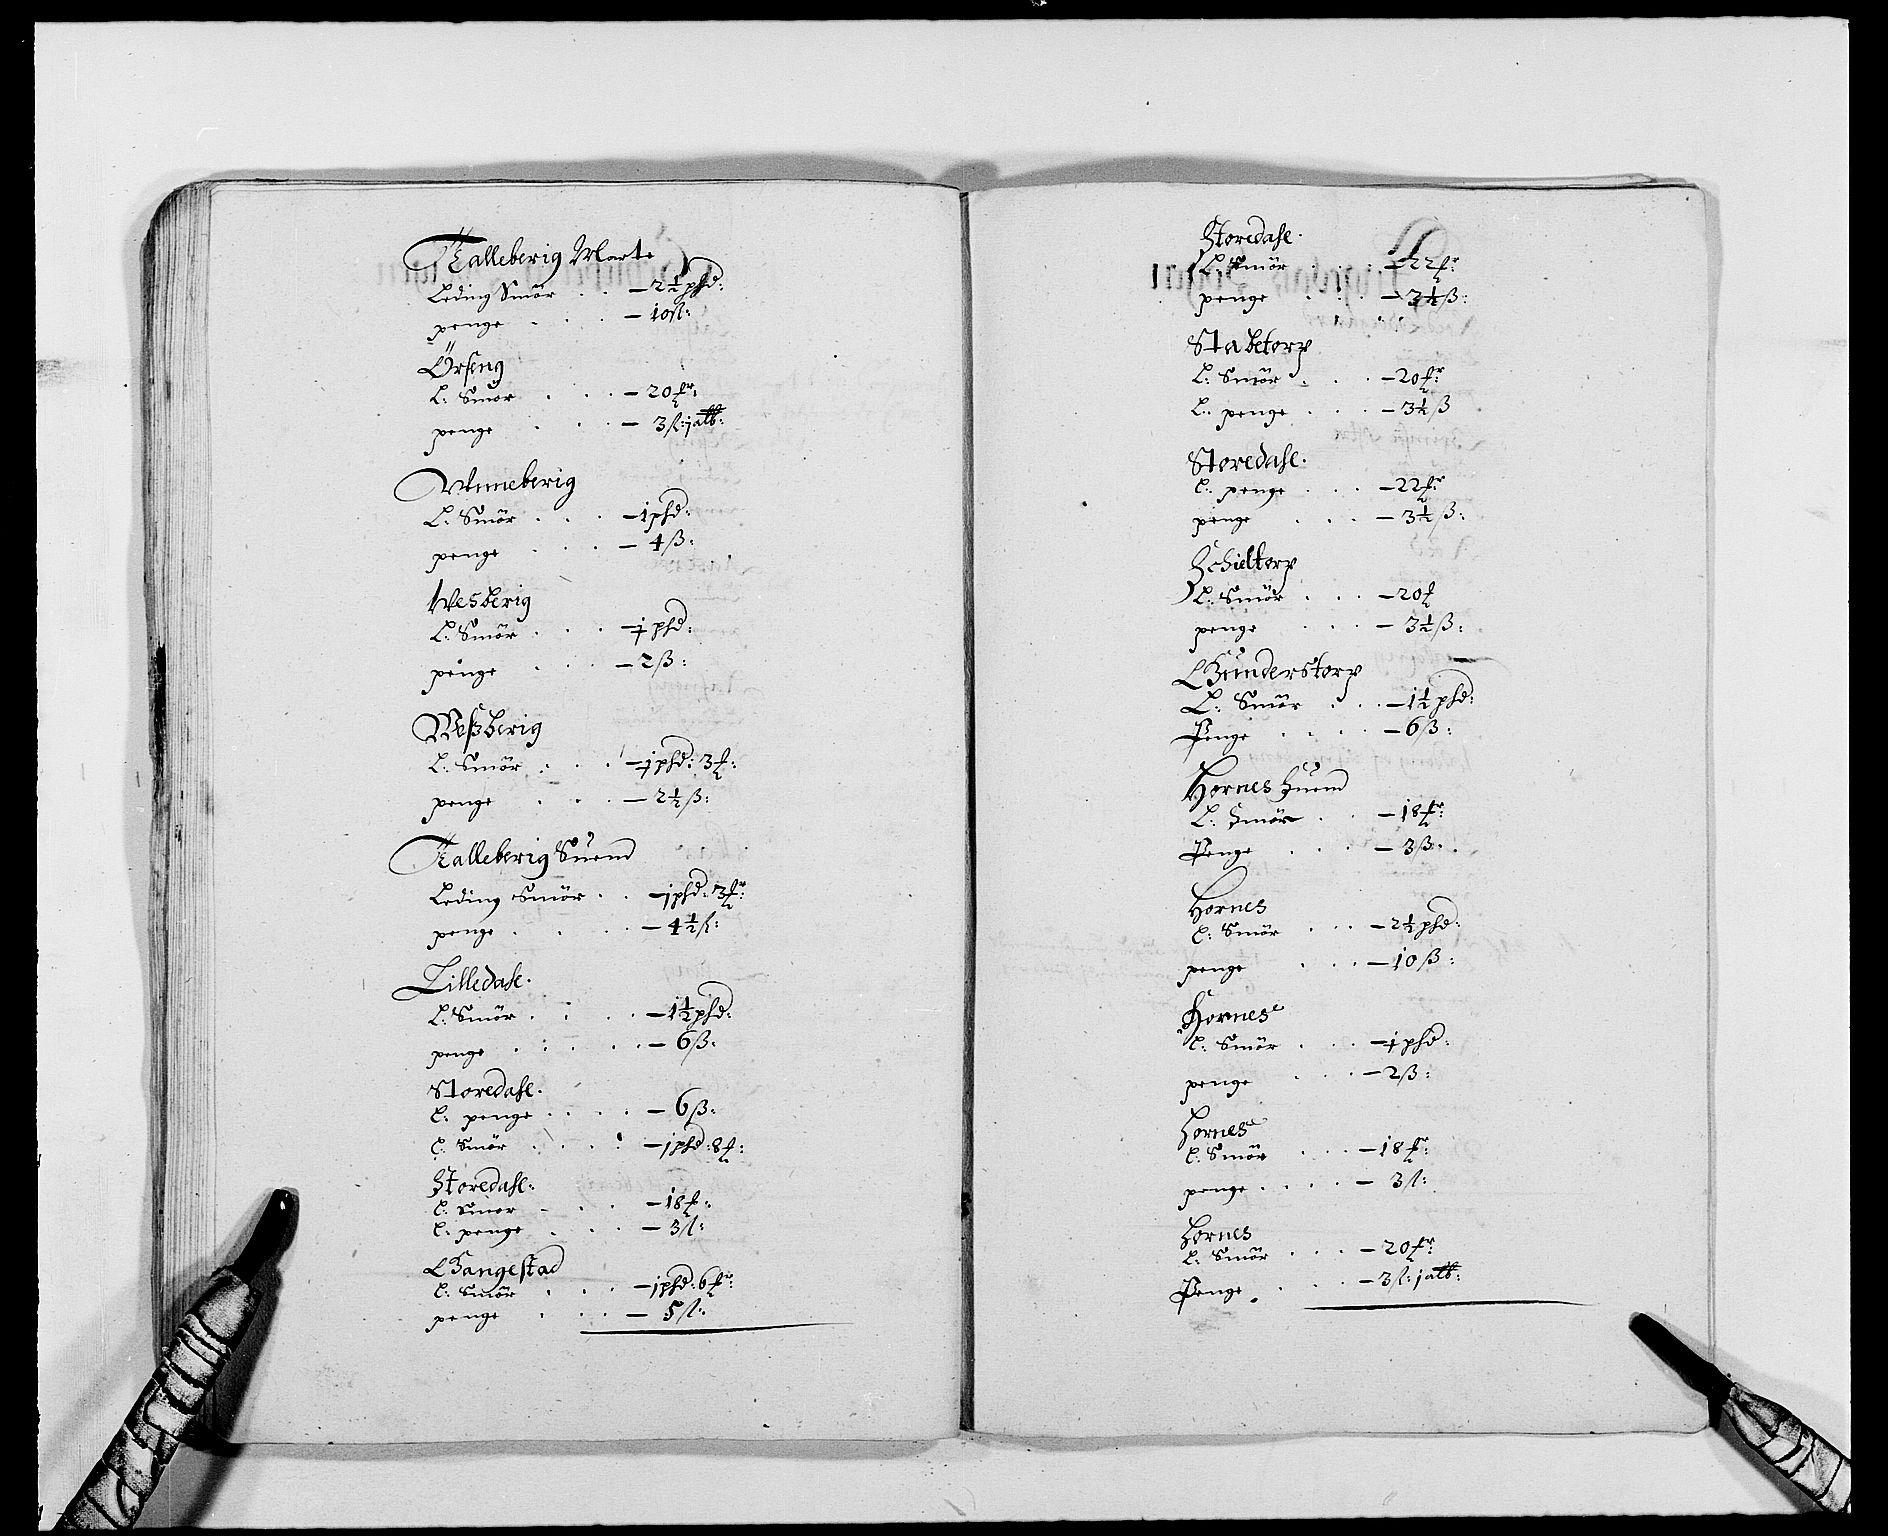 Kalleberig Marte
Leding Smör . . — 2½ phd:
penge . . . — 10 ß:
Örseng
L: Smör . . . — 20 ℔r:
penge . . . — 3 ß: j alb:
Wnneberig
L: Smör . . . — 1 phd:
penge . . . — 4 ß:
Wesberig
L: Smör . . . — j phd:
penge . . . — 2 ß:
Weßberig
L: Smör . . . — j phd: 3 ℔:
penge . . . — 2½ ß:
Kalleberig Suend
Leding Smör . . — j phd: 3 ℔r
penge . . . — 4½ ß:
Lilledahl.
L: Smör . . . — 1½ phd:
penge . . . . — 6 ß:
Storedahl.
L: penge . . . . — 6 ß:
L: Smör . . . . — j phd: 8 ℔:
Storedahl:
L: Smör . . . — 18 ℔:
L: penge . . . — 3 ß:
Gangestad
L: Smör . . . — j phd: 6 ℔r:
penge . . . — 5 ß:
Storedahl.
L: Smör . . . — 22 ℔r:
penge . . . — 3½ ß:
Stabetorp
L: Smör . . . — 20 ℔r:
L: penge . . . — 3½ ß
Storedahl.
L: penge . . . — 22 ℔r
penge . . . — 3½ ß:
Schieltorp
L: Smör . . . — 20 ℔
penge . . . — 3½ ß:
Gunderstorp
L: Smör . . . — 1½ phd:
Penge . . . . — 6 ß:
Hornes Suend
L: Smör . . — 18 ℔r:
Penge . . . — 3 ß:
Hornes
L: Smör . . . — 2½ phd:
penge . . . — 10 ß:
Hornes
L: Smör . . . — j phd:
penge . . . — 2 ß:
Hornes
L: Smör . . . — 18 ℔r:
penge . . . . — 3 ß:
Hornes
L: Smör . . . — 20 ℔r:
Penge . . . — 3 ß: j alb: